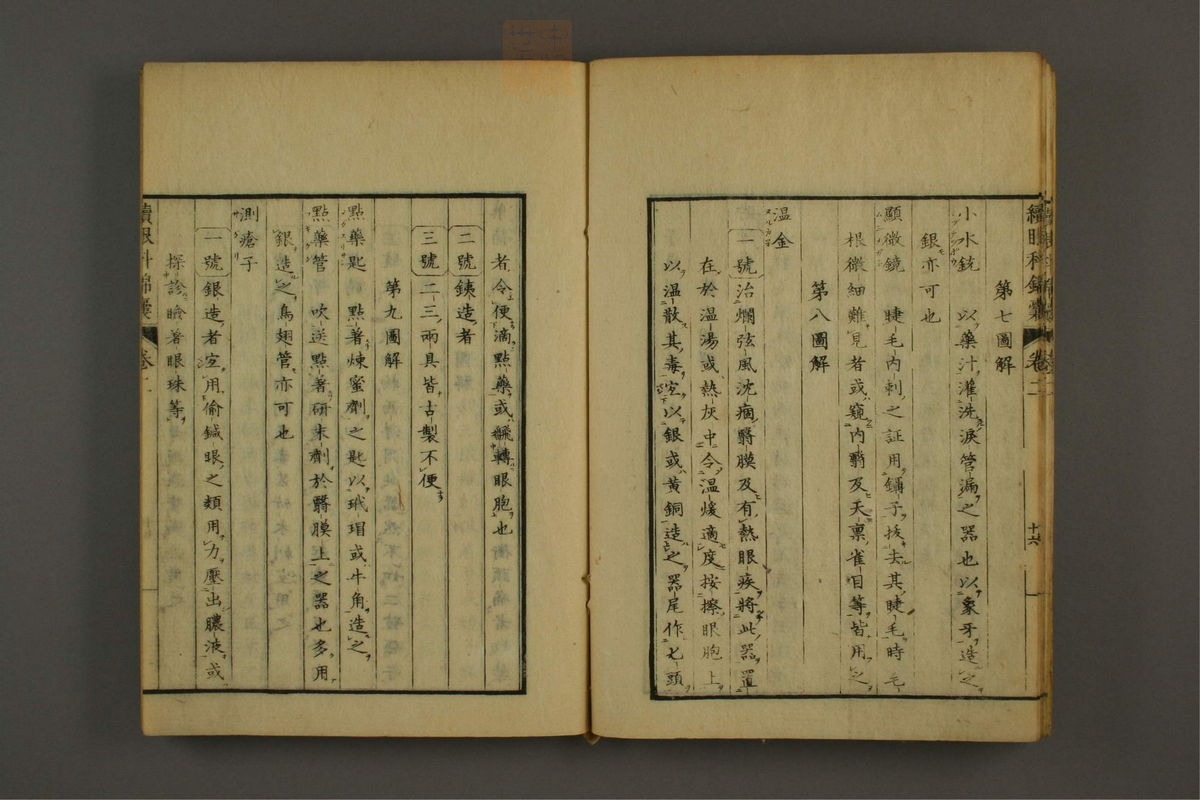 續眼科錦囊 卷二 十六
第七圖解
小水銃 以藥汁灌洗淚管漏之器也以象牙造之
銀亦可也
顯微鏡 睫毛內刺之証用鑷子拔去其睫毛時毛
根微細難見者或窺內翳及天稟雀目等皆用之
第八圖解
温金
一號 治爛弦風沈痼翳膜及有熱眼疾將此器置
在於温湯或熱灰中令温煖適度按擦眼胞上
以温散其毒宜以銀或黃銅造之器尾作匕頭
者令便滴點藥或飜轉眼胞也
二號 銕造者
三號 二三兩具皆古製不便
第九圖解
點藥匙 點著煉蜜劑之匙以玳瑁或牛角造之
點藥管 吹送點著研末劑於翳膜上之器也多用
銀造之鳥翅管亦可也
測瘡子
一號 銀造者宜用偷鍼眼之類用力壓出膿液或
探診瞼著眼珠等
續眼科錦囊 卷二